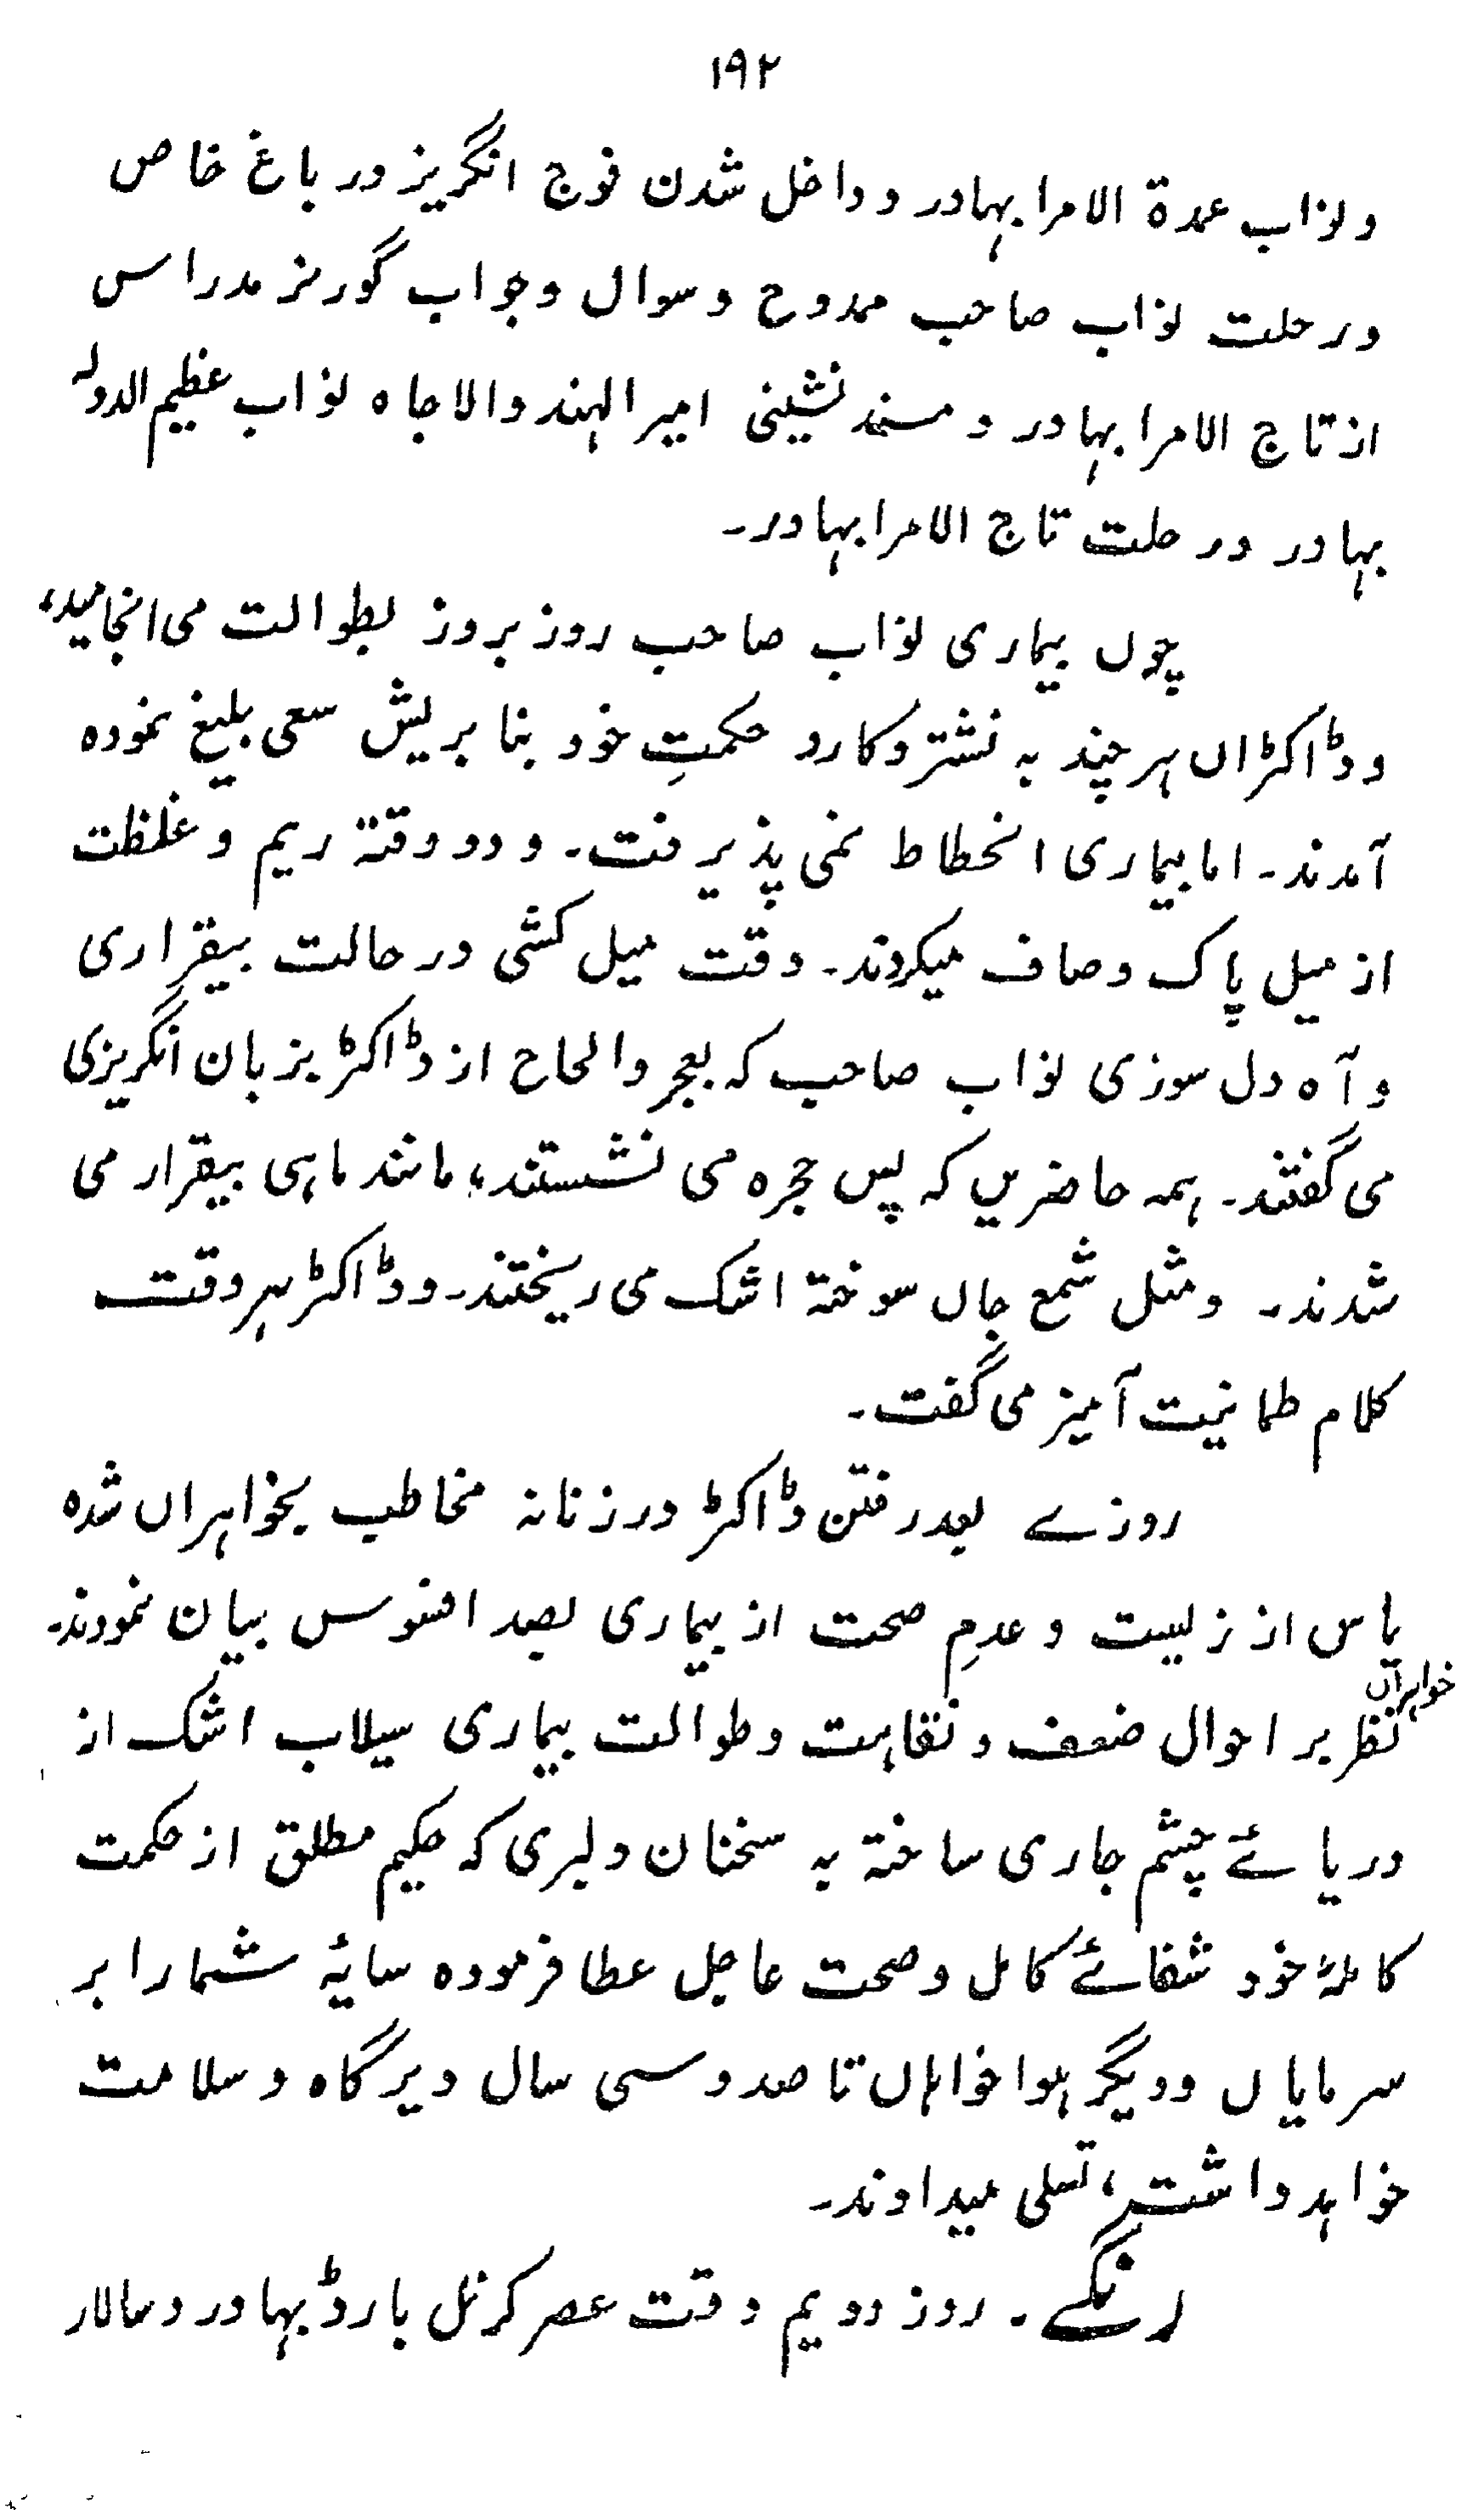 ۱۹۲
ونواب عمدة الامرا بہادر و داخل شدن فوج انگریز در باغ خاص
و رحلت نواب صاحب ممدوح و سوال و جواب گورنر مدراس
از تاج الامرا بہادر و مسند نشینی امیر الہند والا جاہ نواب عظیم الدولہ
بہادر و رحلت تاج الامرا بہادر۔
چوں بیماری نواب صاحب روز بروز بطوالت می انجامید،
و ڈاکٹراں ہر چند بہ نشتر و کارد حکمتِ خود بنا بر ریش سعی بلیغ نمودہ
آمدند۔ اما بیماری انحطاط نمی پذیرفت۔ و دو وقتہ ریم و غلظت
از میل پاک و صاف میکردند۔ وقت میل کشی در حالت بیقراری
و آہ دل سوزی نواب صاحب کہ بعجز و الحاح از ڈاکٹر بزبان انگریزی
می گفتند۔ ہمہ حاضریں کہ پس حجرہ می نشستند، مانند ماہی بیقرار می
شدند۔ و مثل شمع جاں سوختہ اشک می ریختند۔ و ڈاکٹر ہر وقت
کلام طمانیت آمیز می گفت۔
روزے بعد رفتن ڈاکٹر در زنانہ مخاطب بخواہراں شدہ
یاس از زیست و عدمِ صحت از بیماری بصد افسوس بیان نمودند۔
خواہراں
نظر بر احوال ضعف و نقاہت و طوالت بیماری سیلاب اشک از
دریائے چشم جاری ساختہ بہ سخنان دلبری کہ حکیم مطلق از حکمت
کاملۂ خود شفائے کامل و صحت عاجل عطا فرمودہ سایۂ شما را بر
سر مایاں و دیگر ہوا خواہاں تا صد و سی سال دیرگاہ و سلامت
خواہد داشت، تسلی میدادند۔
رنگے۔ روز دویم وقت عصر کرنل بارڈ بہادر و سالار